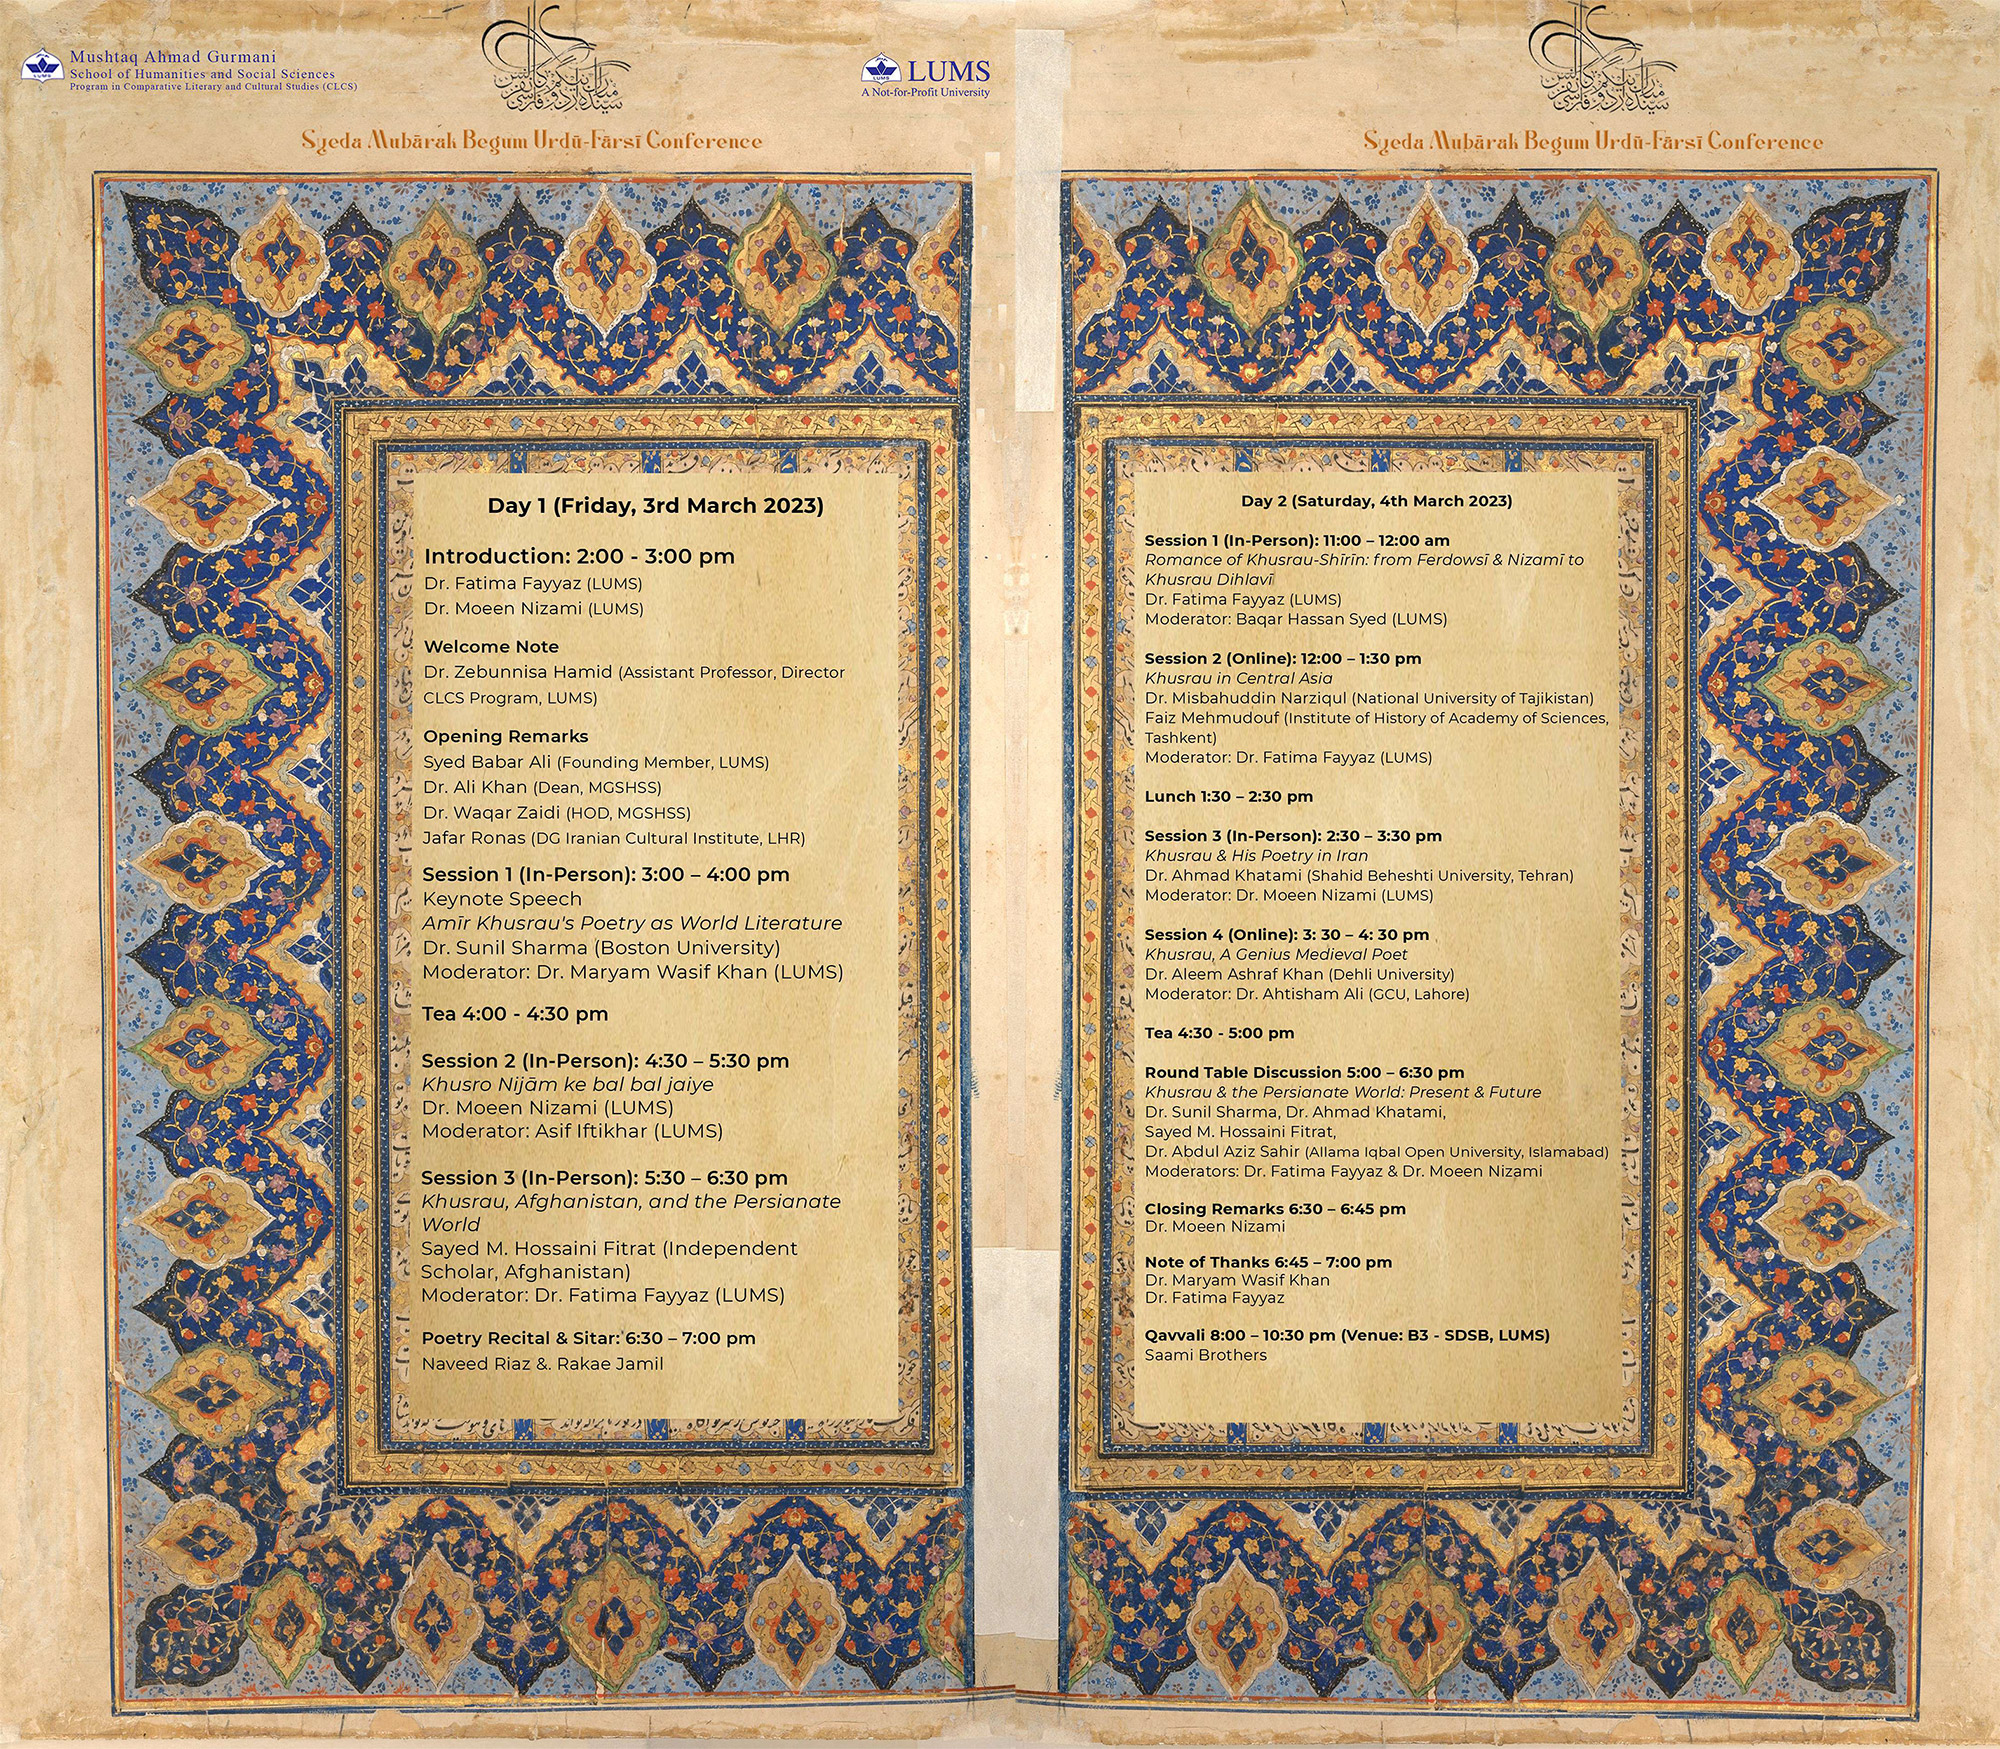 Mushtaq Ahmad Gurmani
School of Humanities and Social Sciences
Program in Comparative Literary and Cultural Studies (CLCS)
LUMS
A Not-for-Profit University
Syeda Mubārak Begum Urdū-Fārsī Conference
Day 1 (Friday, 3rd March 2023)
Introduction: 2:00 - 3:00 pm
Dr. Fatima Fayyaz (LUMS)
Dr. Moeen Nizami (LUMS)
Welcome Note
Dr. Zebunnisa Hamid (Assistant Professor, Director
CLCS Program, LUMS)
Opening Remarks
Syed Babar Ali (Founding Member, LUMS)
Dr. Ali Khan (Dean, MGSHSS)
Dr. Waqar Zaidi (HOD, MGSHSS)
Jafar Ronas (DG Iranian Cultural Institute, LHR)
Session 1 (In-Person): 3:00 – 4:00 pm
Keynote Speech
Amīr Khusrau's Poetry as World Literature
Dr. Sunil Sharma (Boston University)
Moderator: Dr. Maryam Wasif Khan (LUMS)
Tea 4:00 - 4:30 pm
Session 2 (In-Person): 4:30 – 5:30 pm
Khusro Nijām ke bal bal jaiye
Dr. Moeen Nizami (LUMS)
Moderator: Asif Iftikhar (LUMS)
Session 3 (In-Person): 5:30 – 6:30 pm
Khusrau, Afghanistan, and the Persianate
World
Sayed M. Hossaini Fitrat (Independent
Scholar, Afghanistan)
Moderator: Dr. Fatima Fayyaz (LUMS)
Poetry Recital & Sitar: 6:30 – 7:00 pm
Naveed Riaz &. Rakae Jamil
Syeda Mubārak Begum Urdū-Fārsī Conference
Day 2 (Saturday, 4th March 2023)
Session 1 (In-Person): 11:00 – 12:00 am
Romance of Khusrau-Shīrīn: from Ferdowsī & Nizamī to
Khusrau Dihlavī
Dr. Fatima Fayyaz (LUMS)
Moderator: Baqar Hassan Syed (LUMS)
Session 2 (Online): 12:00 – 1:30 pm
Khusrau in Central Asia
Dr. Misbahuddin Narziqul (National University of Tajikistan)
Faiz Mehmudouf (Institute of History of Academy of Sciences,
Tashkent)
Moderator: Dr. Fatima Fayyaz (LUMS)
Lunch 1:30 – 2:30 pm
Session 3 (In-Person): 2:30 – 3:30 pm
Khusrau & His Poetry in Iran
Dr. Ahmad Khatami (Shahid Beheshti University, Tehran)
Moderator: Dr. Moeen Nizami (LUMS)
Session 4 (Online): 3: 30 – 4: 30 pm
Khusrau, A Genius Medieval Poet
Dr. Aleem Ashraf Khan (Dehli University)
Moderator: Dr. Ahtisham Ali (GCU, Lahore)
Tea 4:30 - 5:00 pm
Round Table Discussion 5:00 – 6:30 pm
Khusrau & the Persianate World: Present & Future
Dr. Sunil Sharma, Dr. Ahmad Khatami,
Sayed M. Hossaini Fitrat,
Dr. Abdul Aziz Sahir (Allama Iqbal Open University, Islamabad)
Moderators: Dr. Fatima Fayyaz & Dr. Moeen Nizami
Closing Remarks 6:30 – 6:45 pm
Dr. Moeen Nizami
Note of Thanks 6:45 – 7:00 pm
Dr. Maryam Wasif Khan
Dr. Fatima Fayyaz
Qavvali 8:00 – 10:30 pm (Venue: B3 - SDSB, LUMS)
Saami Brothers